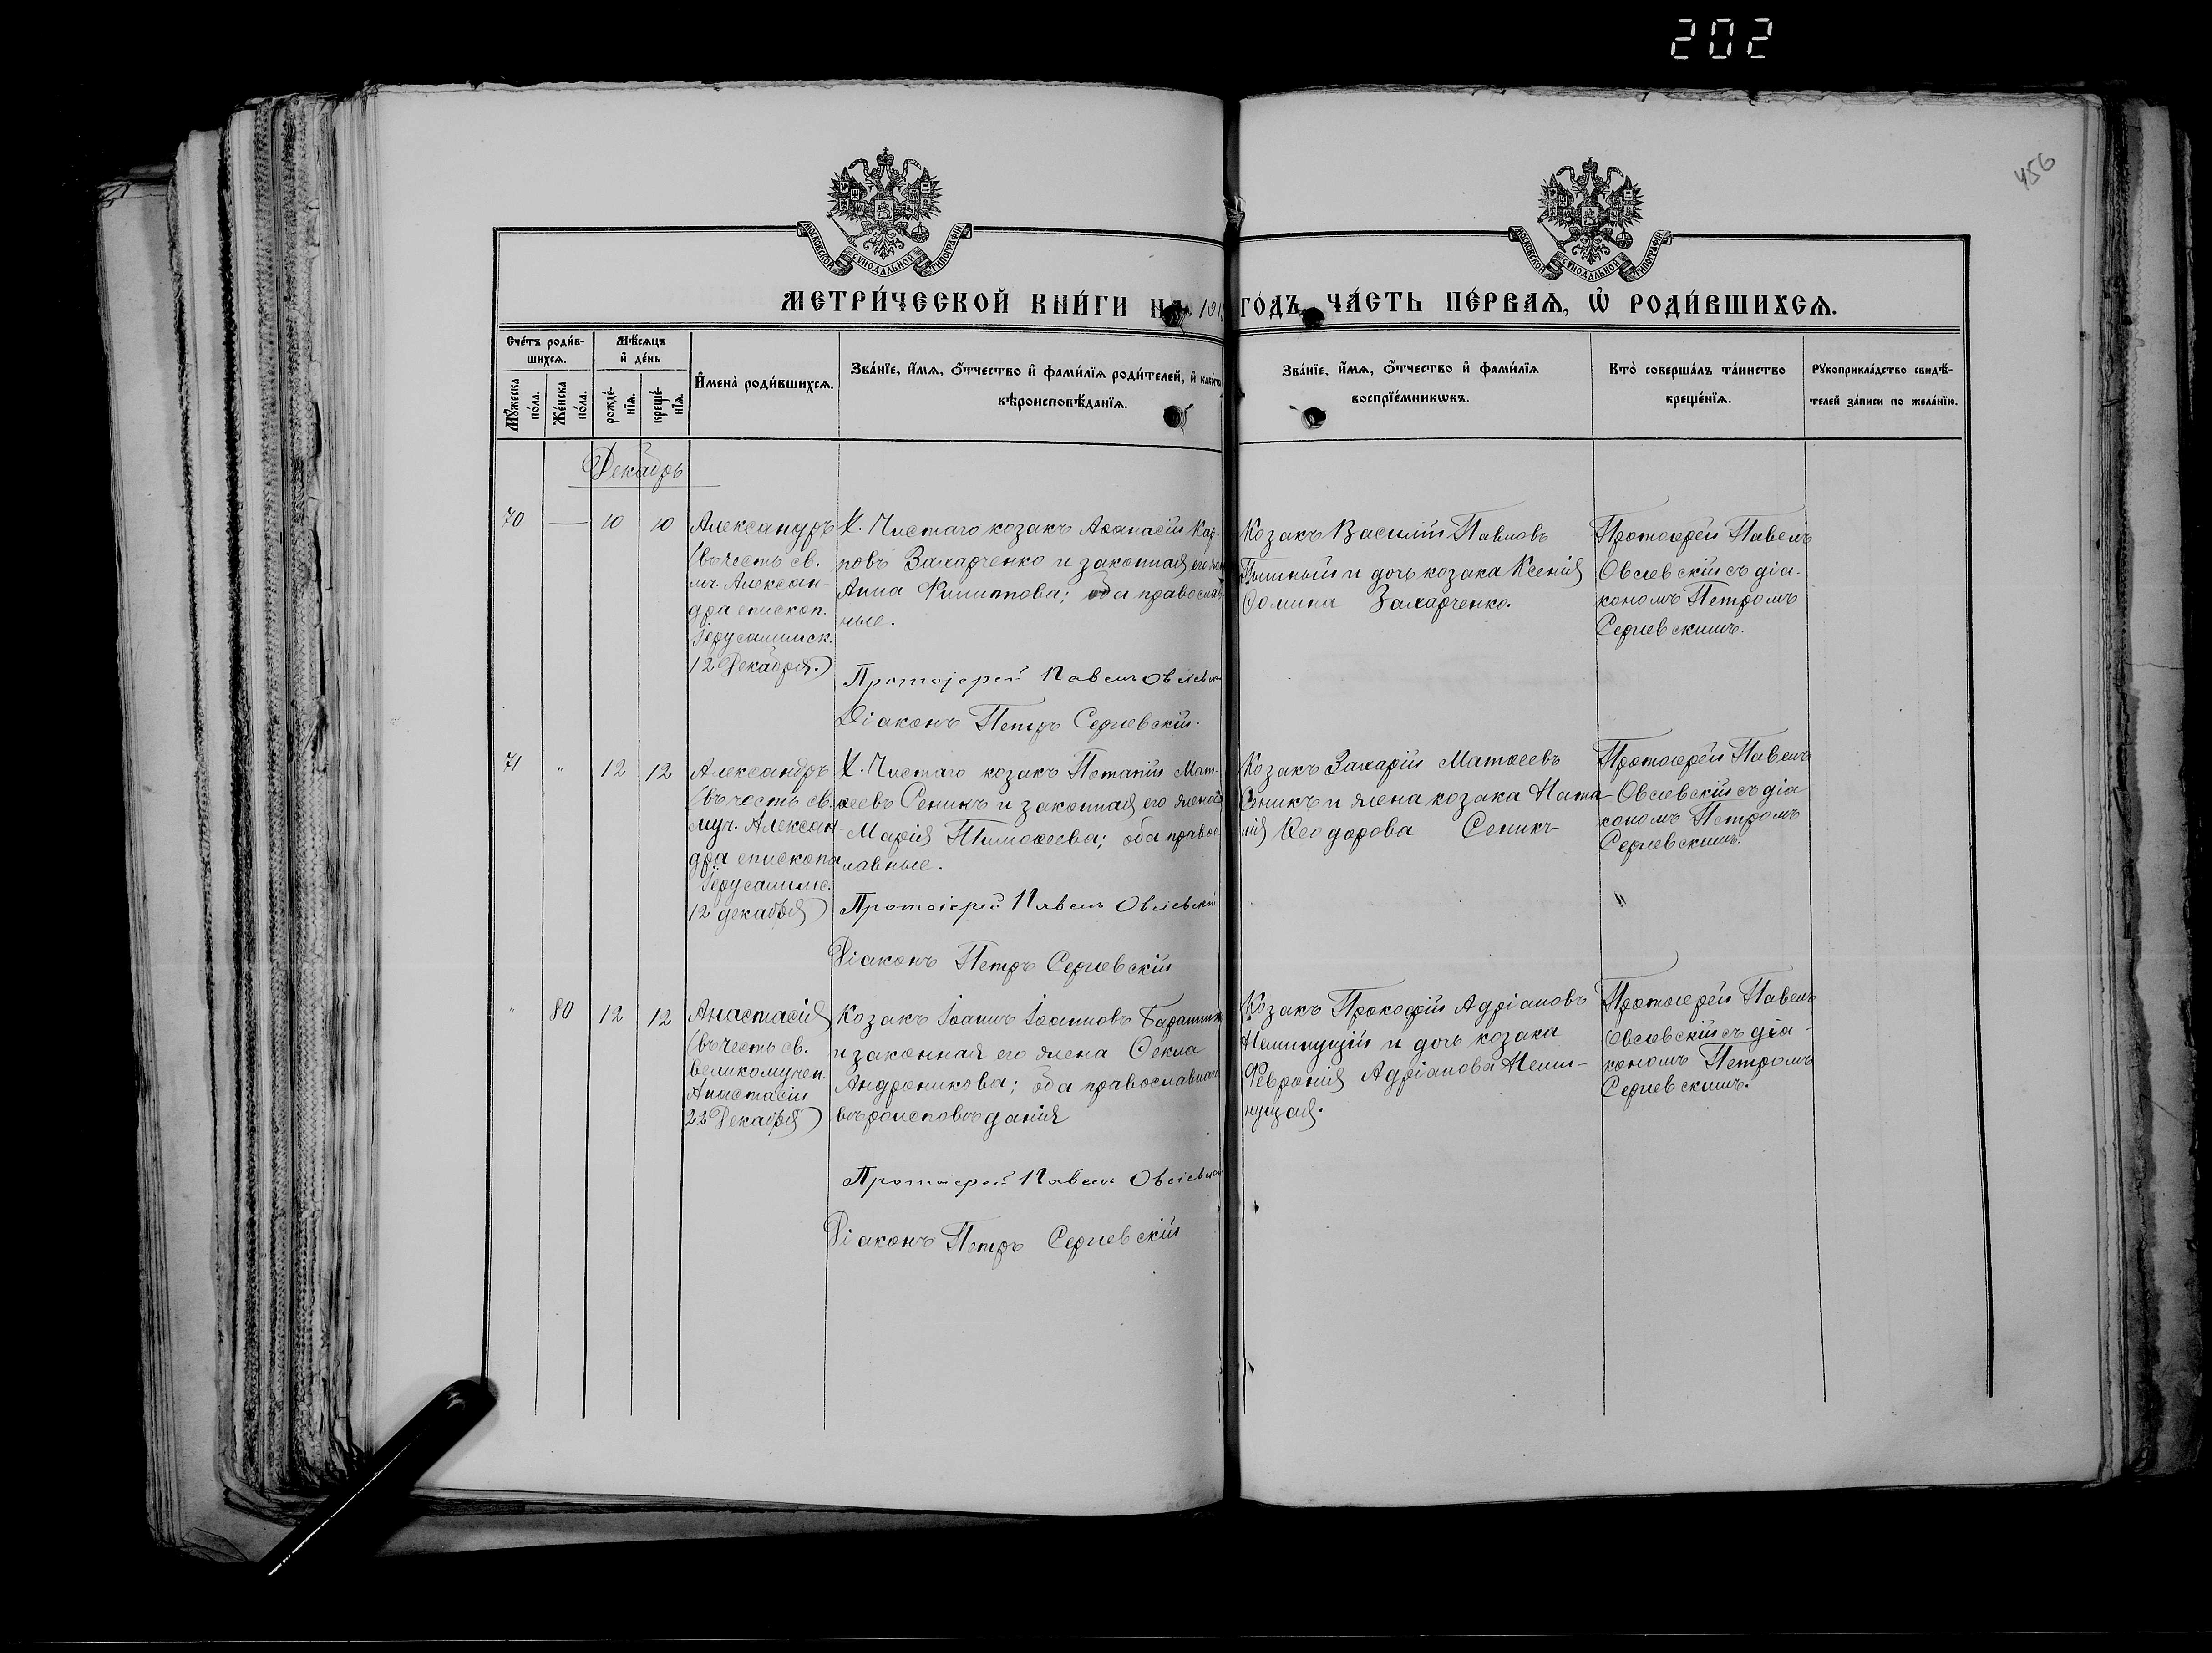 202
456
МОСКОВСКОЙ СѴНОДАЛЬНОЙ ТИПОГРАФІИ
МОСКОВСКОЙ СѴНОДАЛЬНОЙ ТИПОГРАФІИ
МЕТРИ́ЧЕСКОЙ КНИ́ГИ ГО́ДЪ, ЧА́СТЬ ПЕ́РВАѦ, Ѡ҆ РОДИ́ВШИХСѦ.
Сче́тъ роди́в-
шихсѧ.
Мꙋ́жеска по́ла.
Же́нска по́ла.
Мѣ́сѧцъ
и҆ де́нь
рожде́-
нїѧ.
креще́-
нїѧ.
И҆мена̀ роди́вшихсѧ.
Зва́нїе, и҆́мѧ, ѻ҆́тчество и҆ фами́лїѧ роди́телей, и҆
вѣроисповѣ́данїѧ.
Зва́нїе, и҆́мѧ, ѻ҆́тчество и҆ фами́лїѧ
воспрїе́мникѡвъ.
Кто̀ соверша́лъ та́инство
креще́нїѧ.
Рꙋкоприкла́дство свидѣ́-
телей за́писи по жела́нїю.
Декабрь
70 — 10 10
Александръ
(въ честь св.
мч. Алексан-
дра епископ.
Іерусалимск.
12 Декабря.)
Х. Чистаго козакъ Аѳанасій Кар-
повъ Захарченко и законная его
Анна Филиппова; оба православ-
ные.
Протоіерей Павелъ Овсіевск
Діаконъ Петръ Сергіевскій.
Козакъ Василій Павловъ
и дочь козака Ксенія
Ѳомина Захарченко.
Протоіерей Павелъ
Овсіевскій съ діа-
кономъ Петромъ
Сергіевскимъ.
71 " 12 12
Александръ
(въ честь св.
муч. Алексан-
дра епископа
Іерусалимс.
12 декабря)
Х. Чистаго козакъ Потапій Мат-
ѳеевъ Сеникъ и законная его жена
Марія Тимоѳеева; оба правос-
лавные.
Протоіерей Павелъ Овсіевскій
Діаконъ Петръ Сергіевскій
Козакъ Захарій Матѳеевъ
Сеникъ и жена козака Ната-
лія Ѳеодорова Сеникъ
Протоіерей Павелъ
Овсіевскій съ діа
кономъ Петромъ
Сергіевскимъ.
" 80 12 12
Анастасія
(въ честь св.
великомучен.
Анастасіи
22 Декабря)
Козакъ Іоаннъ Іоанновъ
и законная его жена Ѳекла
Андроникова; оба православнаго
вѣроисповѣданія
Протоіерей Павелъ Овсіевскій
Діаконъ Петръ Сергіевскій
Козакъ Прокофій Адріановъ
Неминущій и дочь козака
Февронія Адріанова Неми-
нущая.
Протоіерей Павелъ
Овсіевскій съ діа-
кономъ Петромъ
Сергіевскимъ.